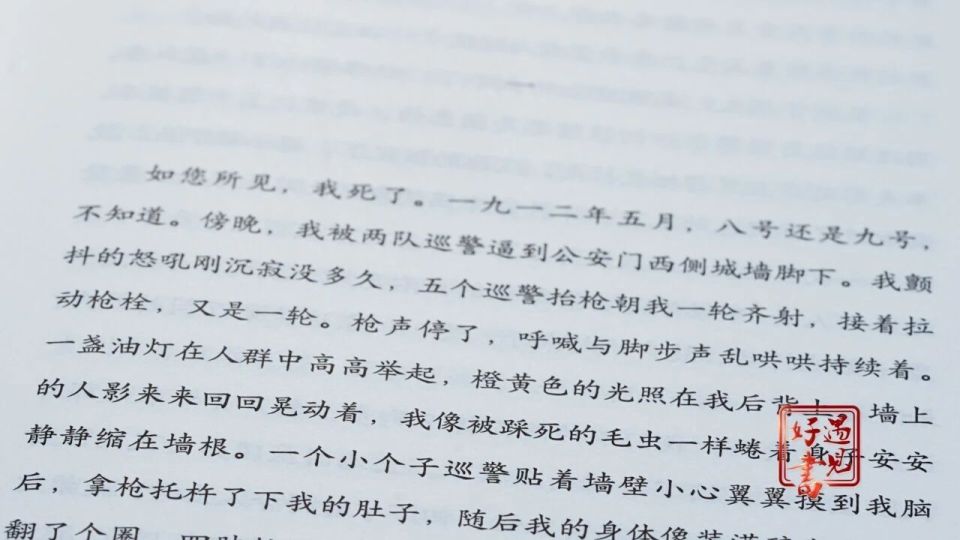 一
如您所见，我死了。一九一二年五月，八号还是九号，
不知道。傍晚，我被两队巡警逼到公安门西侧城墙脚下。我颤
抖的怒吼刚沉寂没多久，五个巡警抬枪朝我一轮齐射，接着拉
动枪栓，又是一轮。枪声停了，呼喊与脚步声乱哄哄持续着。
一盏油灯在人群中高高举起，橙黄色的光照在我后背上，墙上
的人影来来回回晃动着，我像被踩死的毛虫一样蜷着身子安安
静静缩在墙根。一个小个子巡警贴着墙壁小心翼翼摸到我脑
后，拿枪托杵了下我的肚子，随后我的身体像装满
翻了个圈，四肢
遇见
好書